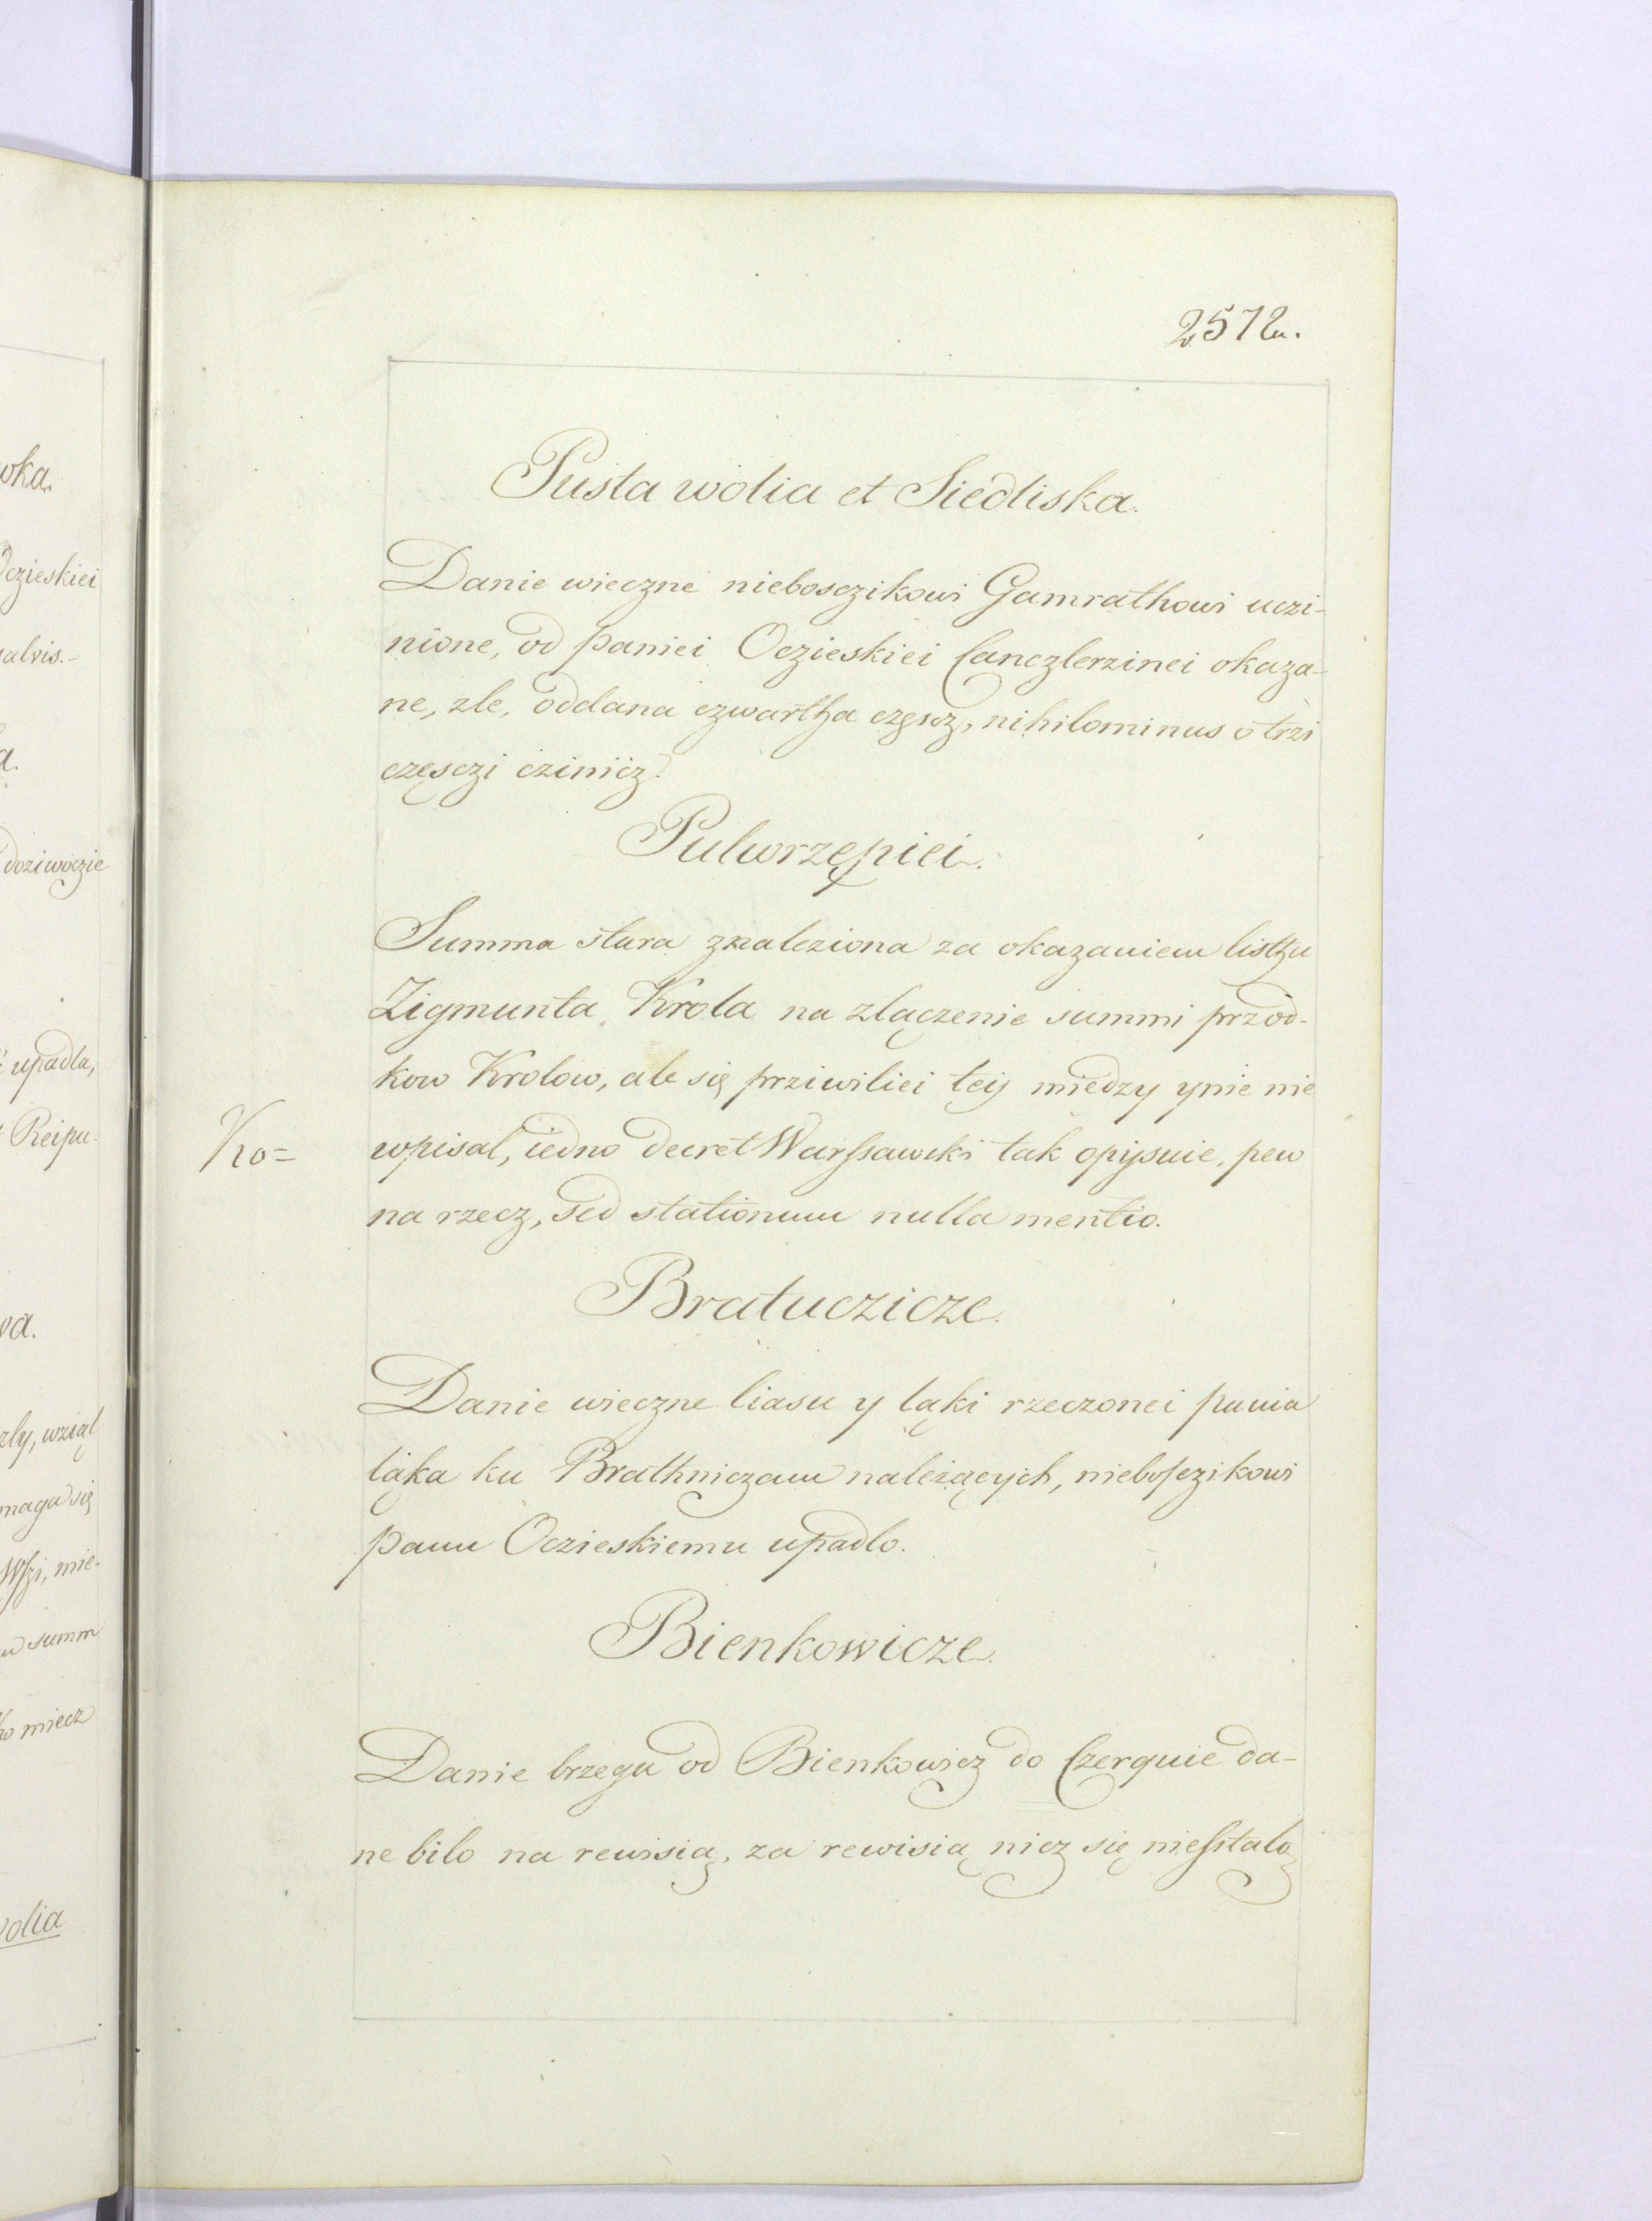 2572.
Pusta wolia et Siedliska.
Danie wieczne niebosczikowi Gamrathowi uczi-
nione, od paniei Oczieskiei Canczlerzinei okaza-
ne, zle, oddana czwartha częscz, nihilominus o trzi
częsczi cziniicz.
Pulwrzępiei.
Summa stara znaleziona za okazaniem listhu
Zigmunta Krola na zlączenie summi przod-
kow Krolow, ale się prziwiliei teij miedzy ynie nie
Ko=
wpisal, iedno decret Warssawski tak opijsuie, pew
na rzecz, sed stationum nulla mentio.
Bratuczicze.
Danie wieczne liasu y ląki rzeczonei pania
ląka ku Brathniczam należącijch, niebosczikowi
panu Oczieskiemu upadlo.
Bienkowicze.
Danie brzegu od Bienkowicz do Czerquie da-
ne bilo na rewisią, za rewisią nicz się niesstalo
oka.
Oczieskiei
salvis.-
a.
doziwoczie
upadla,
Reipu.
va.
zly, wziąl
maga się
Wssi, mie-
summ
ko miecz
wolia